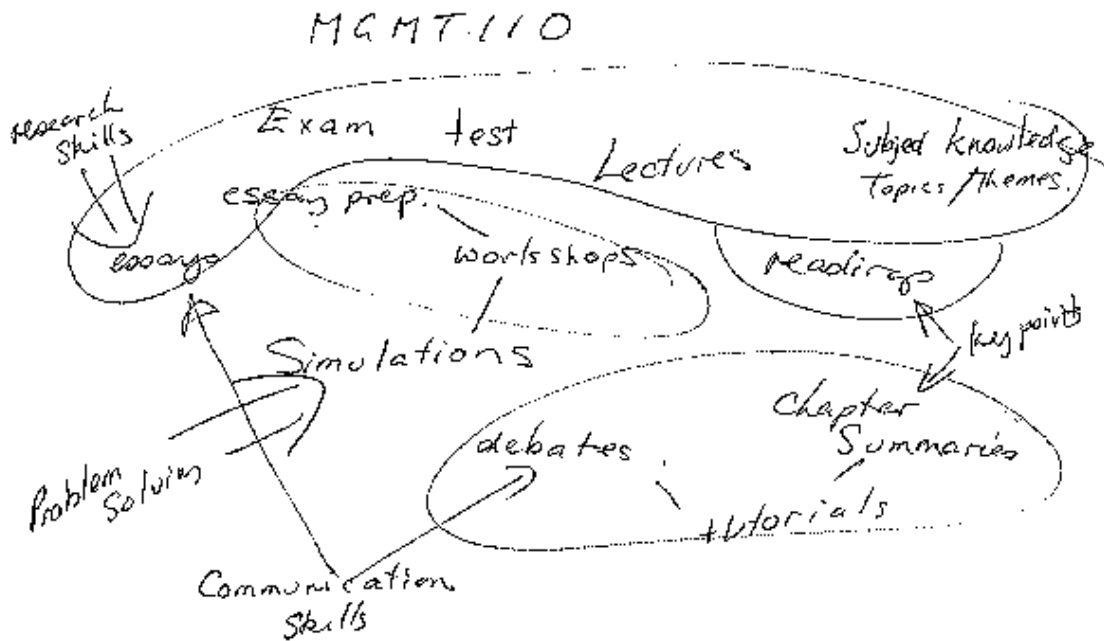 MGMT.110
research
skills
Exam test
Lectures
Subject knowledge
Topics/themes.
essay prep.
workshops
essays
readings
Simulations
key points
Chapter
Summaries
debates
tutorials
Problem
Solving
Communication
Skills